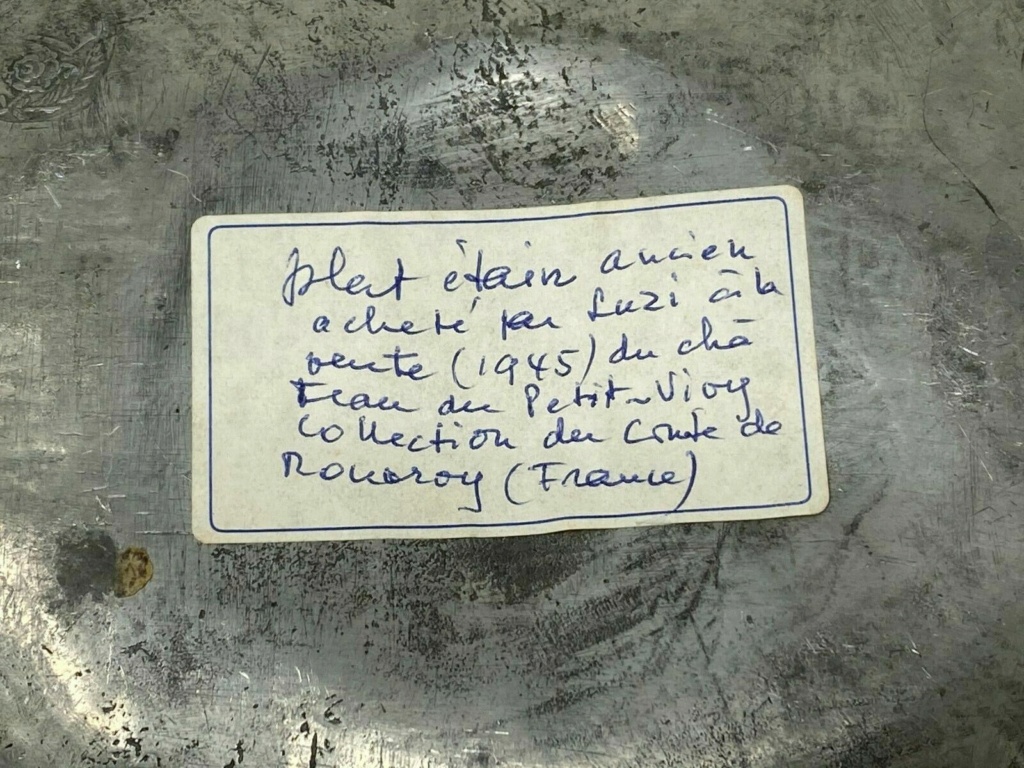 plat étain ancien
acheté par Luzi à la
vente (1945) du châ
teau du Petit-Vivy
Collection du Comte de
(France)